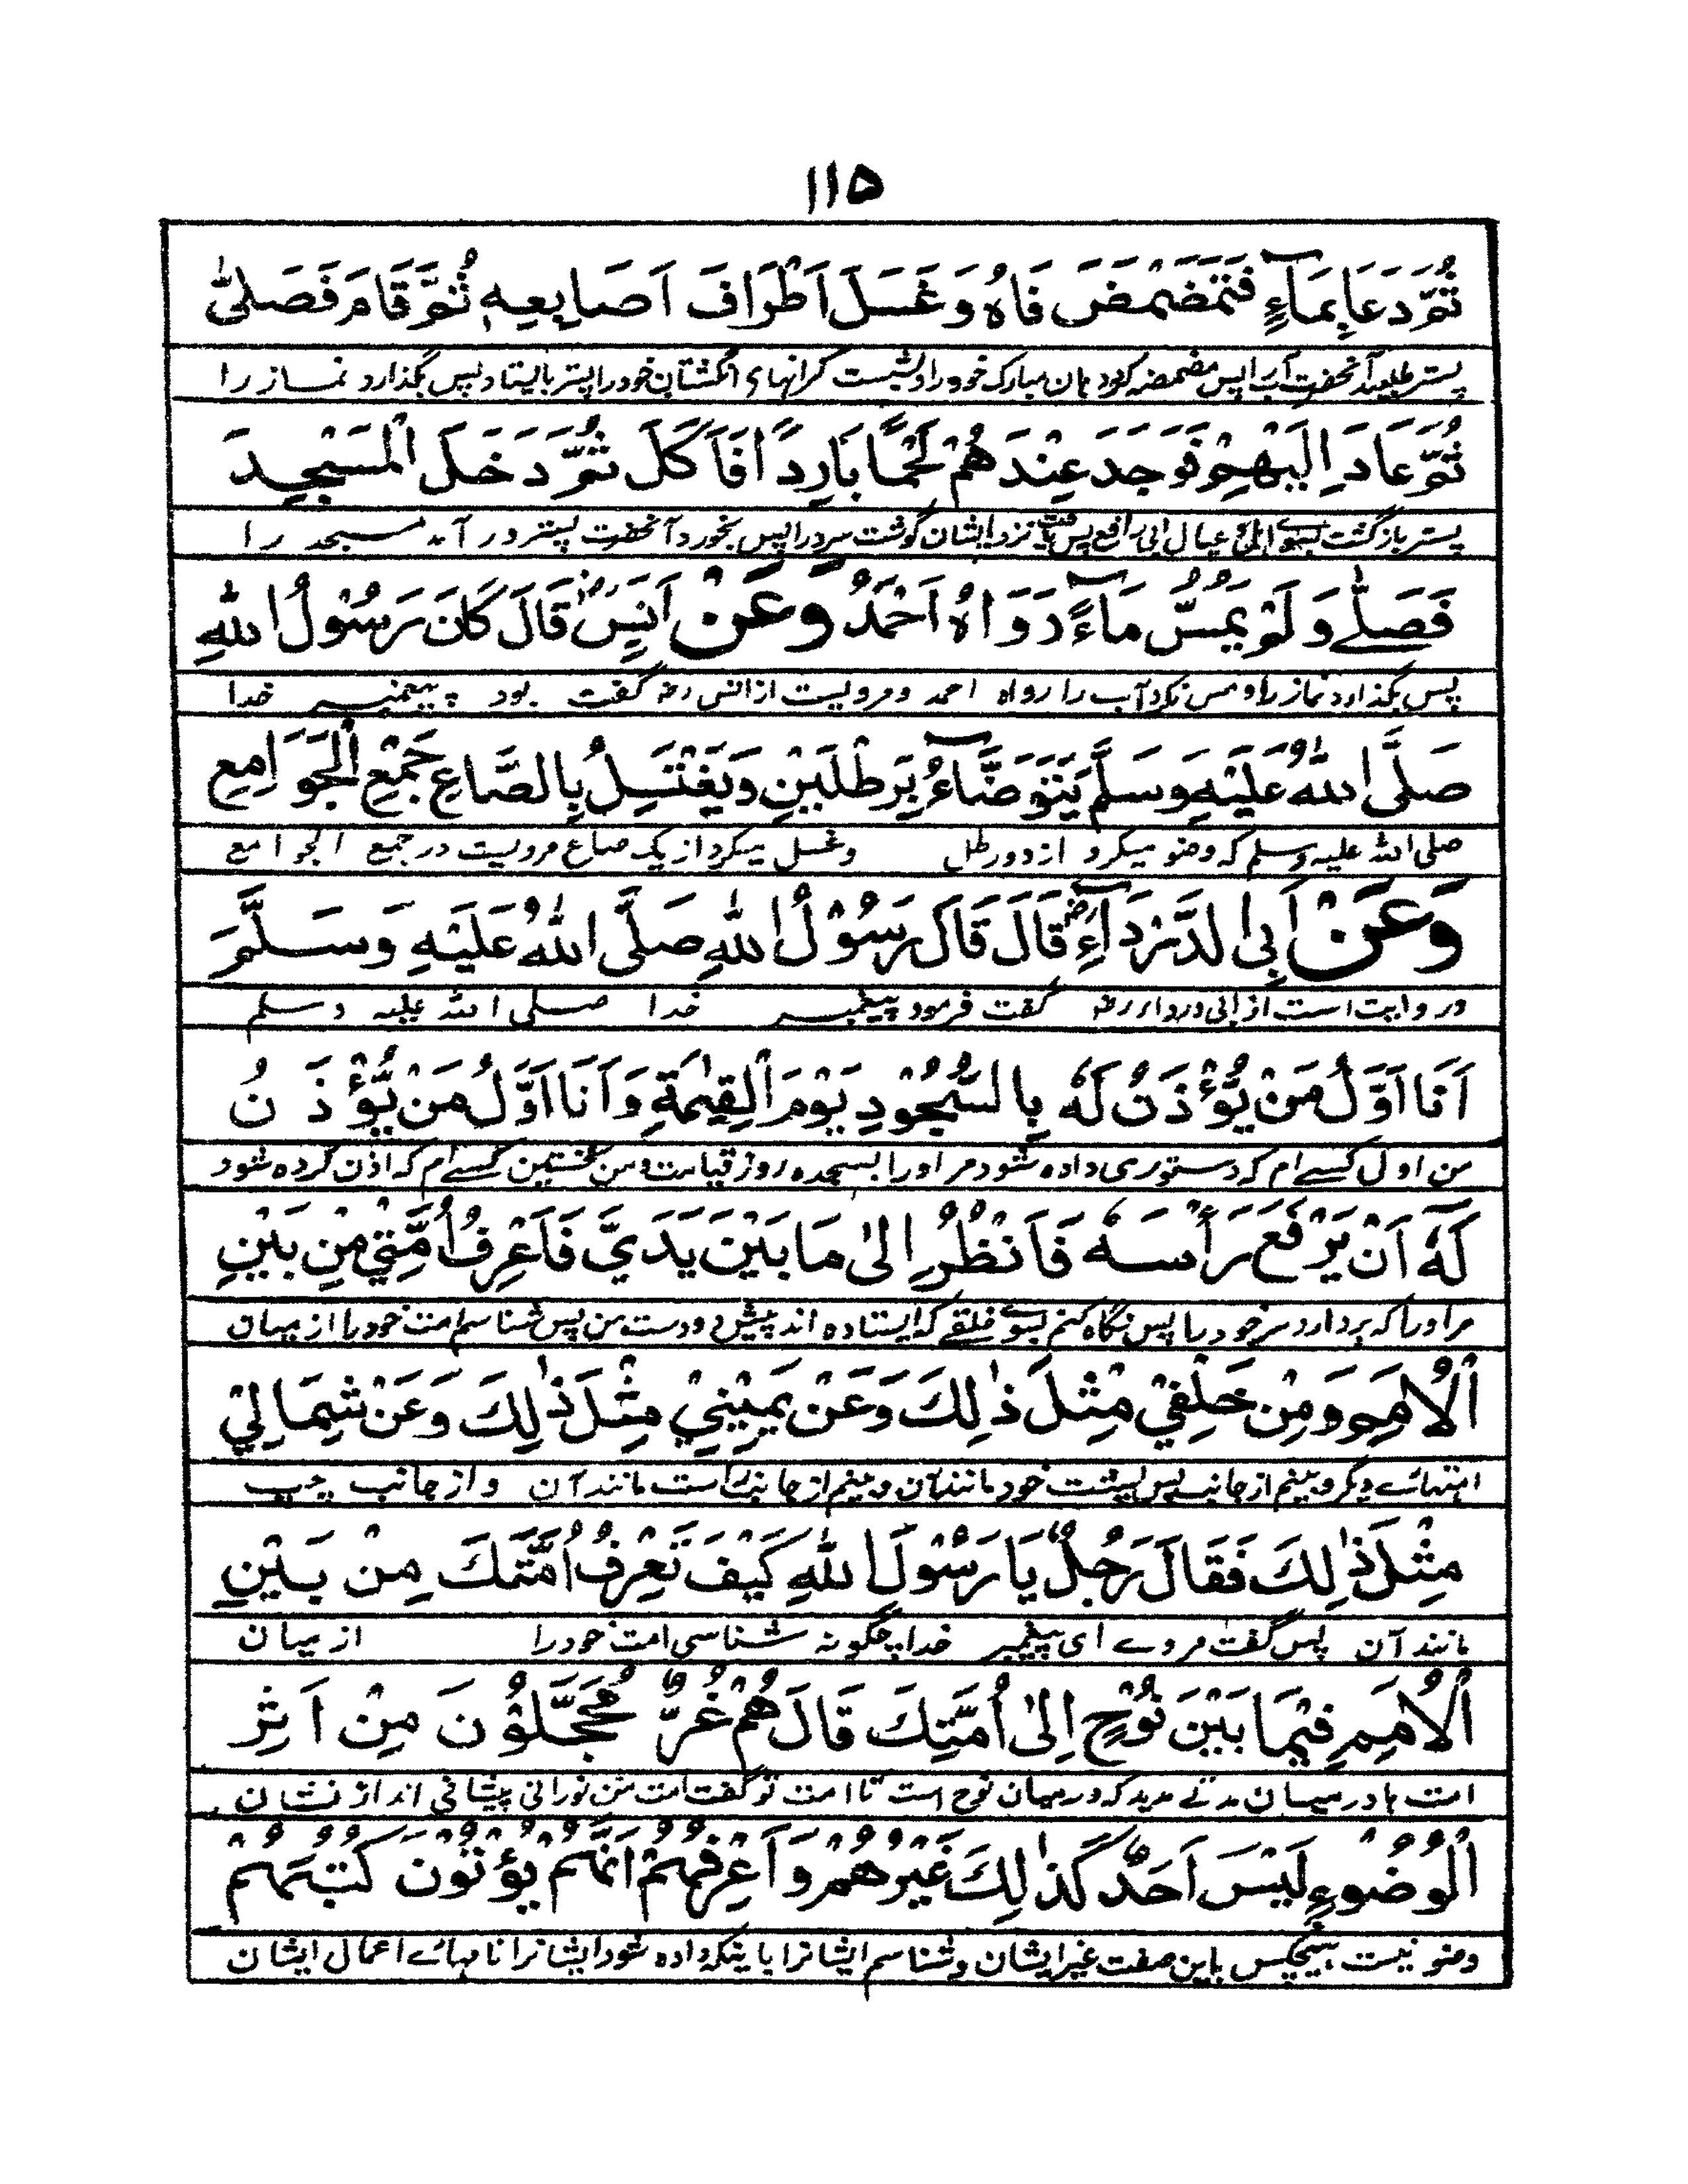 ۱۱۵
ثُمَّ دَعَا بِمَآءٍ فَتَمَضْمَضَ فَاهُ وَغَسَلَ اَطْرَافَ اَصَابِعِهٖ ثُمَّ قَامَ فَصَلّٰى
پستر طلبید آنحضرت آب را پس مضمضه کرد دهان مبارک خود را و بشست کرانهای انگشتان خود را پستر بایستاد پس بگذارد نماز را
ثُمَّ عَادَ اِلَيْهِمْ فَوَجَدَ عِنْدَهُمْ لَحْمًا بَارِدًا فَاَكَلَ ثُمَّ دَخَلَ الْمَسْجِدَ
پستر بازگشت بسوے اهل و عیال ابی رافع پس یافت نزد ایشان گوشت سرد را پس بخورد آنحضرت پستر در آمد مسجد را
فَصَلّٰے وَلَمْ يَمُسَّ مَآءً رَوَاهُ اَحْمَدُ وَعَنْ اَنَسٍ رض قَالَ كَانَ رَسُوْلُ اللّٰهِ
پس بگذارد نماز را و مس نکرد آب را رواه احمد ومرویست از انس رض گفت بود پیغمبر خدا
صَلَّى اللّٰهُ عَلَيْهِ وَسَلَّمَ يَتَوَضَّآءُ بِرَطْلَيْنِ وَيَغْتَسِلُ بِالصَّاعِ جَمْعِ الْجَوَامِعِ
صلی الله علیه وسلم که وضو میکرد از دو رطل وغسل میکرد از یک صاع مرویست در جمع الجوامع
وَعَنْ اَبِى الدَّرْدَآءِ رض قَالَ قَالَ رَسُوْلُ اللّٰهِ صَلَّى اللّٰهُ عَلَيْهِ وَسَلَّمَ
وروایت است از ابی درداء رض گفت فرمود پیغمبر خدا صلی الله علیه وسلم
اَنَا اَوَّلُ مَنْ يُّؤْذَنُ لَهٗ بِالسُّجُوْدِ يَوْمَ الْقِيٰمَةِ وَاَنَا اَوَّلُ مَنْ يُّؤْذَنُ
من اول کسے ام که دستوری داده شود مر او را بسجده روز قیامت ومن نخستین کسے ام که اذن کرده شود
لَهٗ اَنْ يَرْفَعَ رَأْسَهٗ فَاَنْظُرُ اِلىٰ مَا بَيْنَ يَدَيَّ فَاَعْرِفُ اُمَّتِيْ مِنْ بَيْنِ
مر او را که بردارد سر خود را پس نگاه کنم بسوے خلقے که ایستاده اند پیش دو دست من پس شناسم امت خود را از میان
الْاُمَمِ وَمِنْ خَلْفِيْ مِثْلَ ذٰلِكَ وَعَنْ يَمِيْنِيْ مِثْلَ ذٰلِكَ وَعَنْ شِمَالِيْ
امتهائے دیگر و بینم از جانب پس پشت خود مانند آن و بینم از جانب راست مانند آن و از جانب چپ
مِثْلَ ذٰلِكَ فَقَالَ رَجُلٌ يَا رَسُوْلَ اللّٰهِ كَيْفَ تَعْرِفُ اُمَّتَكَ مِنْ بَيْنِ
مانند آن پس گفت مردے ای پیغمبر خدا چگونه شناسی امت خود را از میان
الْاُمَمِ فِيْمَا بَيْنَ نُوْحٍ اِلىٰ اُمَّتِكَ قَالَ هُمْ غُرٌّ مُّحَجَّلُوْنَ مِنْ اَثِرِ
امت ها در میان مدتے مدید که در میان نوح است تا امت تو گفت امت من نورانی پیشانی اند از نشان
الْوُضُوْءِ لَيْسَ اَحَدٌ كَذٰلِكَ غَيْرُهُمْ وَاَعْرِفُهُمْ اَنَّهُمْ يُؤْتَوْنَ كُتُبَهُمْ
وضو نیست هیچکس باین صفت غیر ایشان و شناسم ایشانرا باینکه داده شود ایشانرا نامہائے اعمال ایشان